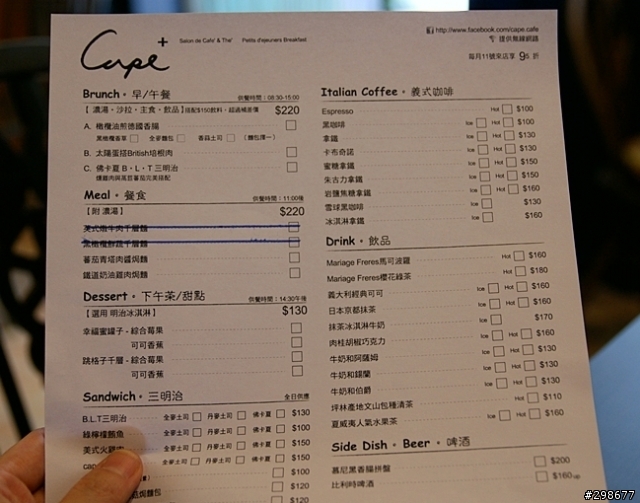 Cape+
Salon de Cafe' & The' Petits d'ejeuners Breakfast
http://www.facebook.com/cape.cafe
提供無線網路
每月11號來店享 95 折
Brunch · 早/午餐 供餐時間:08:30-15:00
【 濃湯、沙拉、主食、飲品】搭配$150飲料,超過補差價 $220
A. 橄欖油煎德國香腸
黑橄欖香草 全麥麵包 香蒜土司 (麵包擇一)
B. 太陽蛋搭British培根肉
C. 佛卡夏 B、L、T 三明治
Meal · 餐食 供餐時間:11:00後
【附 濃湯】 $220
美式嫩牛肉千層麵
蕃茄青塔肉醬焗麵
鐵道奶油雞肉焗麵
Dessert · 下午茶/甜點 供餐時間:14:30午後
【選用 明治冰淇淋】 $130
幸福蜜罐子 - 綜合莓果
可可香蕉
跳格子千層 - 綜合莓果
可可香蕉
Sandwich · 三明治 全日供應
B.L.T三明治 全麥土司 丹麥土司 佛卡夏 $130
綠檸檬鮪魚 全麥土司 丹麥土司 佛卡夏 $150
美式火雞 全麥土司 丹麥土司 佛卡夏 $150
cap 全麥土司 丹麥土司 佛卡夏 $150
$100
麵包 $120
$120
Italian Coffee · 義式咖啡
Espresso Hot $100
黑咖啡 Ice Hot $100
拿鐵 Ice Hot $130
卡布奇諾 Ice Hot $130
蜜糖拿鐵 Ice Hot $150
朱古力拿鐵 Ice Hot $150
岩鹽焦糖拿鐵 Ice Hot $160
雪球黑咖啡 Ice $130
冰淇淋拿鐵 Ice $160
Drink · 飲品
Mariage Freres馬可波羅 Hot $160
Mariage Freres櫻花綠茶 Hot $180
義大利經典可可 Ice Hot $160
日本京都抹茶 Ice Hot $160
抹茶冰淇淋牛奶 Ice $170
肉桂胡椒巧克力 Hot $160
牛奶和阿薩姆 Ice Hot $130
牛奶和錫蘭 Ice Hot $130
牛奶和伯爵 Ice Hot $130
坪林產地文山包種清茶 Hot $110
夏威夷人氣水果茶 Ice Hot $160
Side Dish · Beer · 啤酒
慕尼黑香腸拼盤 $200
比利時啤酒 $160
#298677